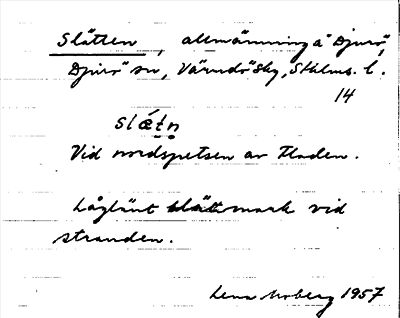 Slätten, allmänning å Djurö,
Djurö sn, Värmdö skg, Sthlms. l.
14
slǽtn̥
Vid nordspetsen av Fladen.
Låglänt slättmark vid
stranden.
Lena Moberg 1957